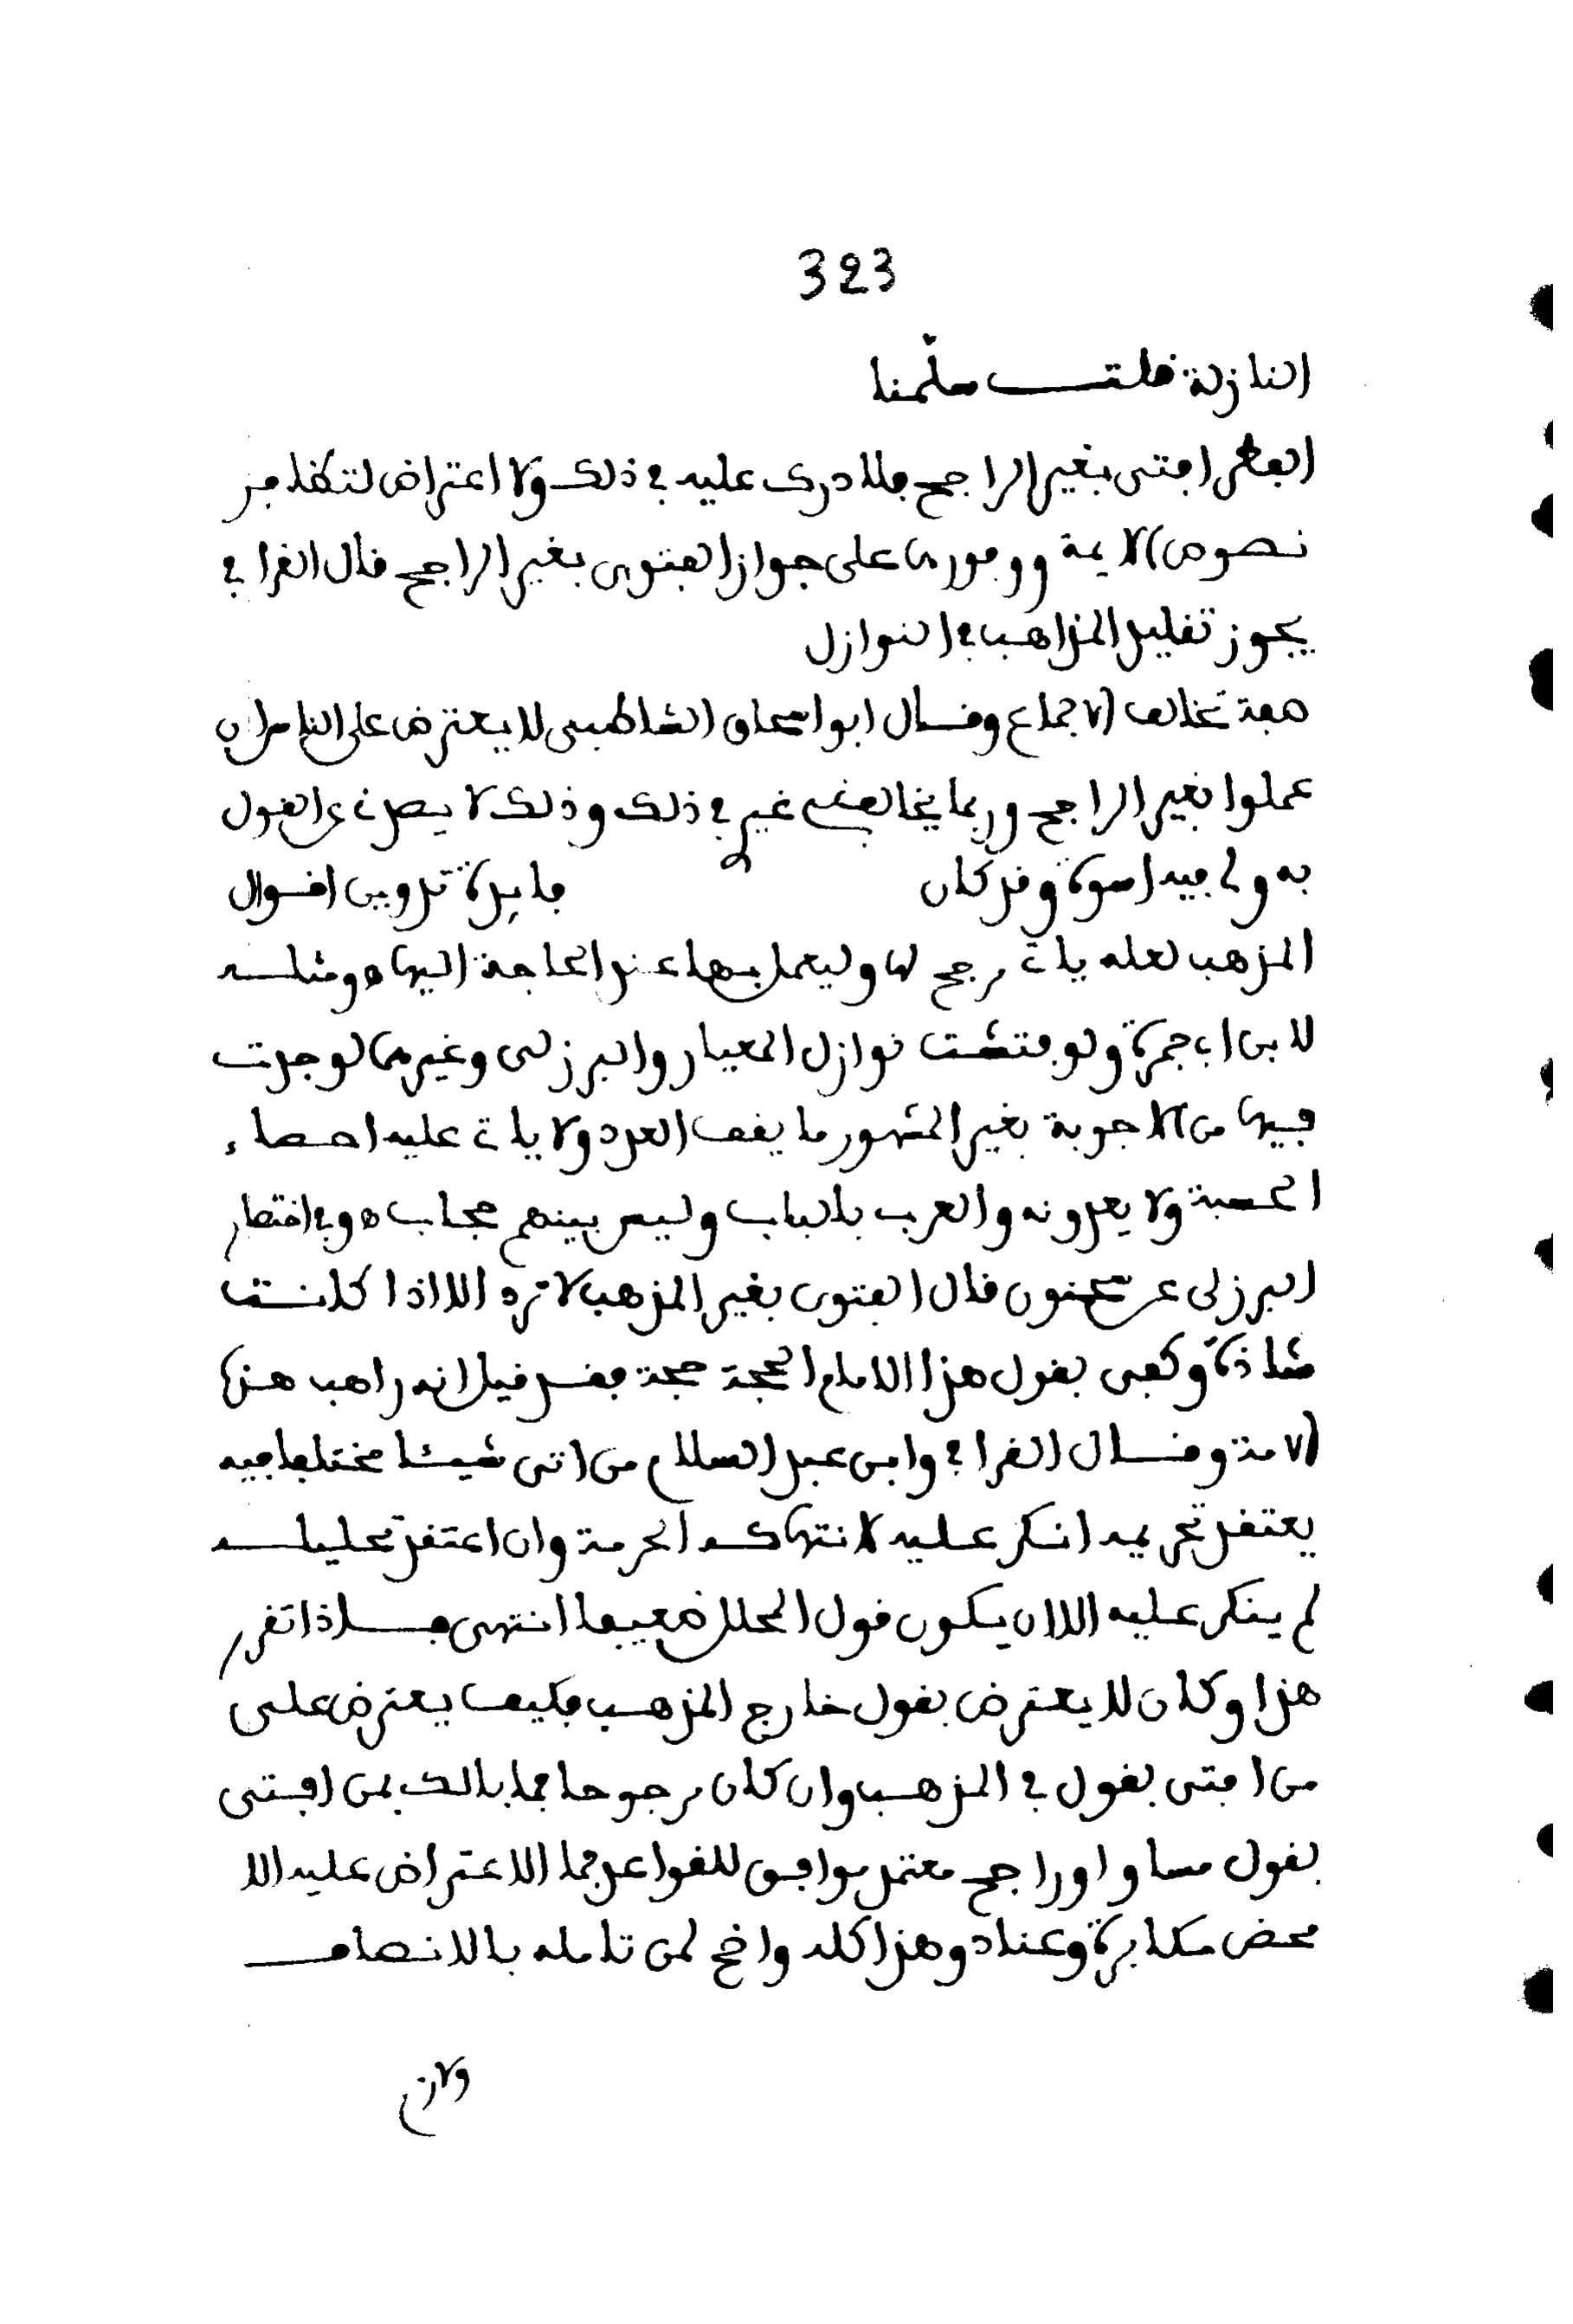 323
النازلة قلت سلّمنا
افتى بغير الراجح فلا درك عليه في ذلك ولا اعتراض
نصوص الايمة على جواز الفتوى بغير الراجح قال القرافي
يجوز تقليد المذاهب في النوازل
تخالف الاجماع وقال ابو اسحاق الشاطبي لا يعترض على الناس ان
عملوا بغير الراجح وربما غير في ذلك وذلك لا القول
به ولي فيه اسوة وقد كان فايدة تدوين اقوال
المذهب لعله ياتي مرجح لها وليعمل بها عند الحاجة اليها ه ومثله
لابن ابي جمرة ولو فتشت نوازل المعيار والبرزلي وغيرهما لوجدت
فيها من الاجوبة بغير المشهور ما يقف العدد ولا ياتي عليه احصاء
الحسبة ولا يعدونه والعرب بالباب وليس بينهم حجاب ه وفي اختصار
البرزلي عن سحنون قال الفتوى بغير المذهب لا ترد الا اذا كانت
شاذة وكفى بقول هذا الامام الحجة حجة فقد قيل انه راهب هذه
الامة وقال القرافي وابن عبد السلام من اتى شيئا مختلفا فيه
يعتقد تحريمه انكر عليه لانتهاكه الحرمة وان اعتقد تحليله
لم ينكر عليه الا ان يكون قول المحلل ضعيفا انتهى فاذا تقرر
هذا وكان لا يعترض بقول خارج المذهب فكيف يعترض على
من افتى بقول في المذهب وان كان مرجوحا فما بالك بمن افتى
بقول مساو او راجح معتمد موافق للقواعد فما الاعتراض عليه الا
محض مكابرة وعناد وهذا كله واضح لمن تامله بالانصاف
ولان